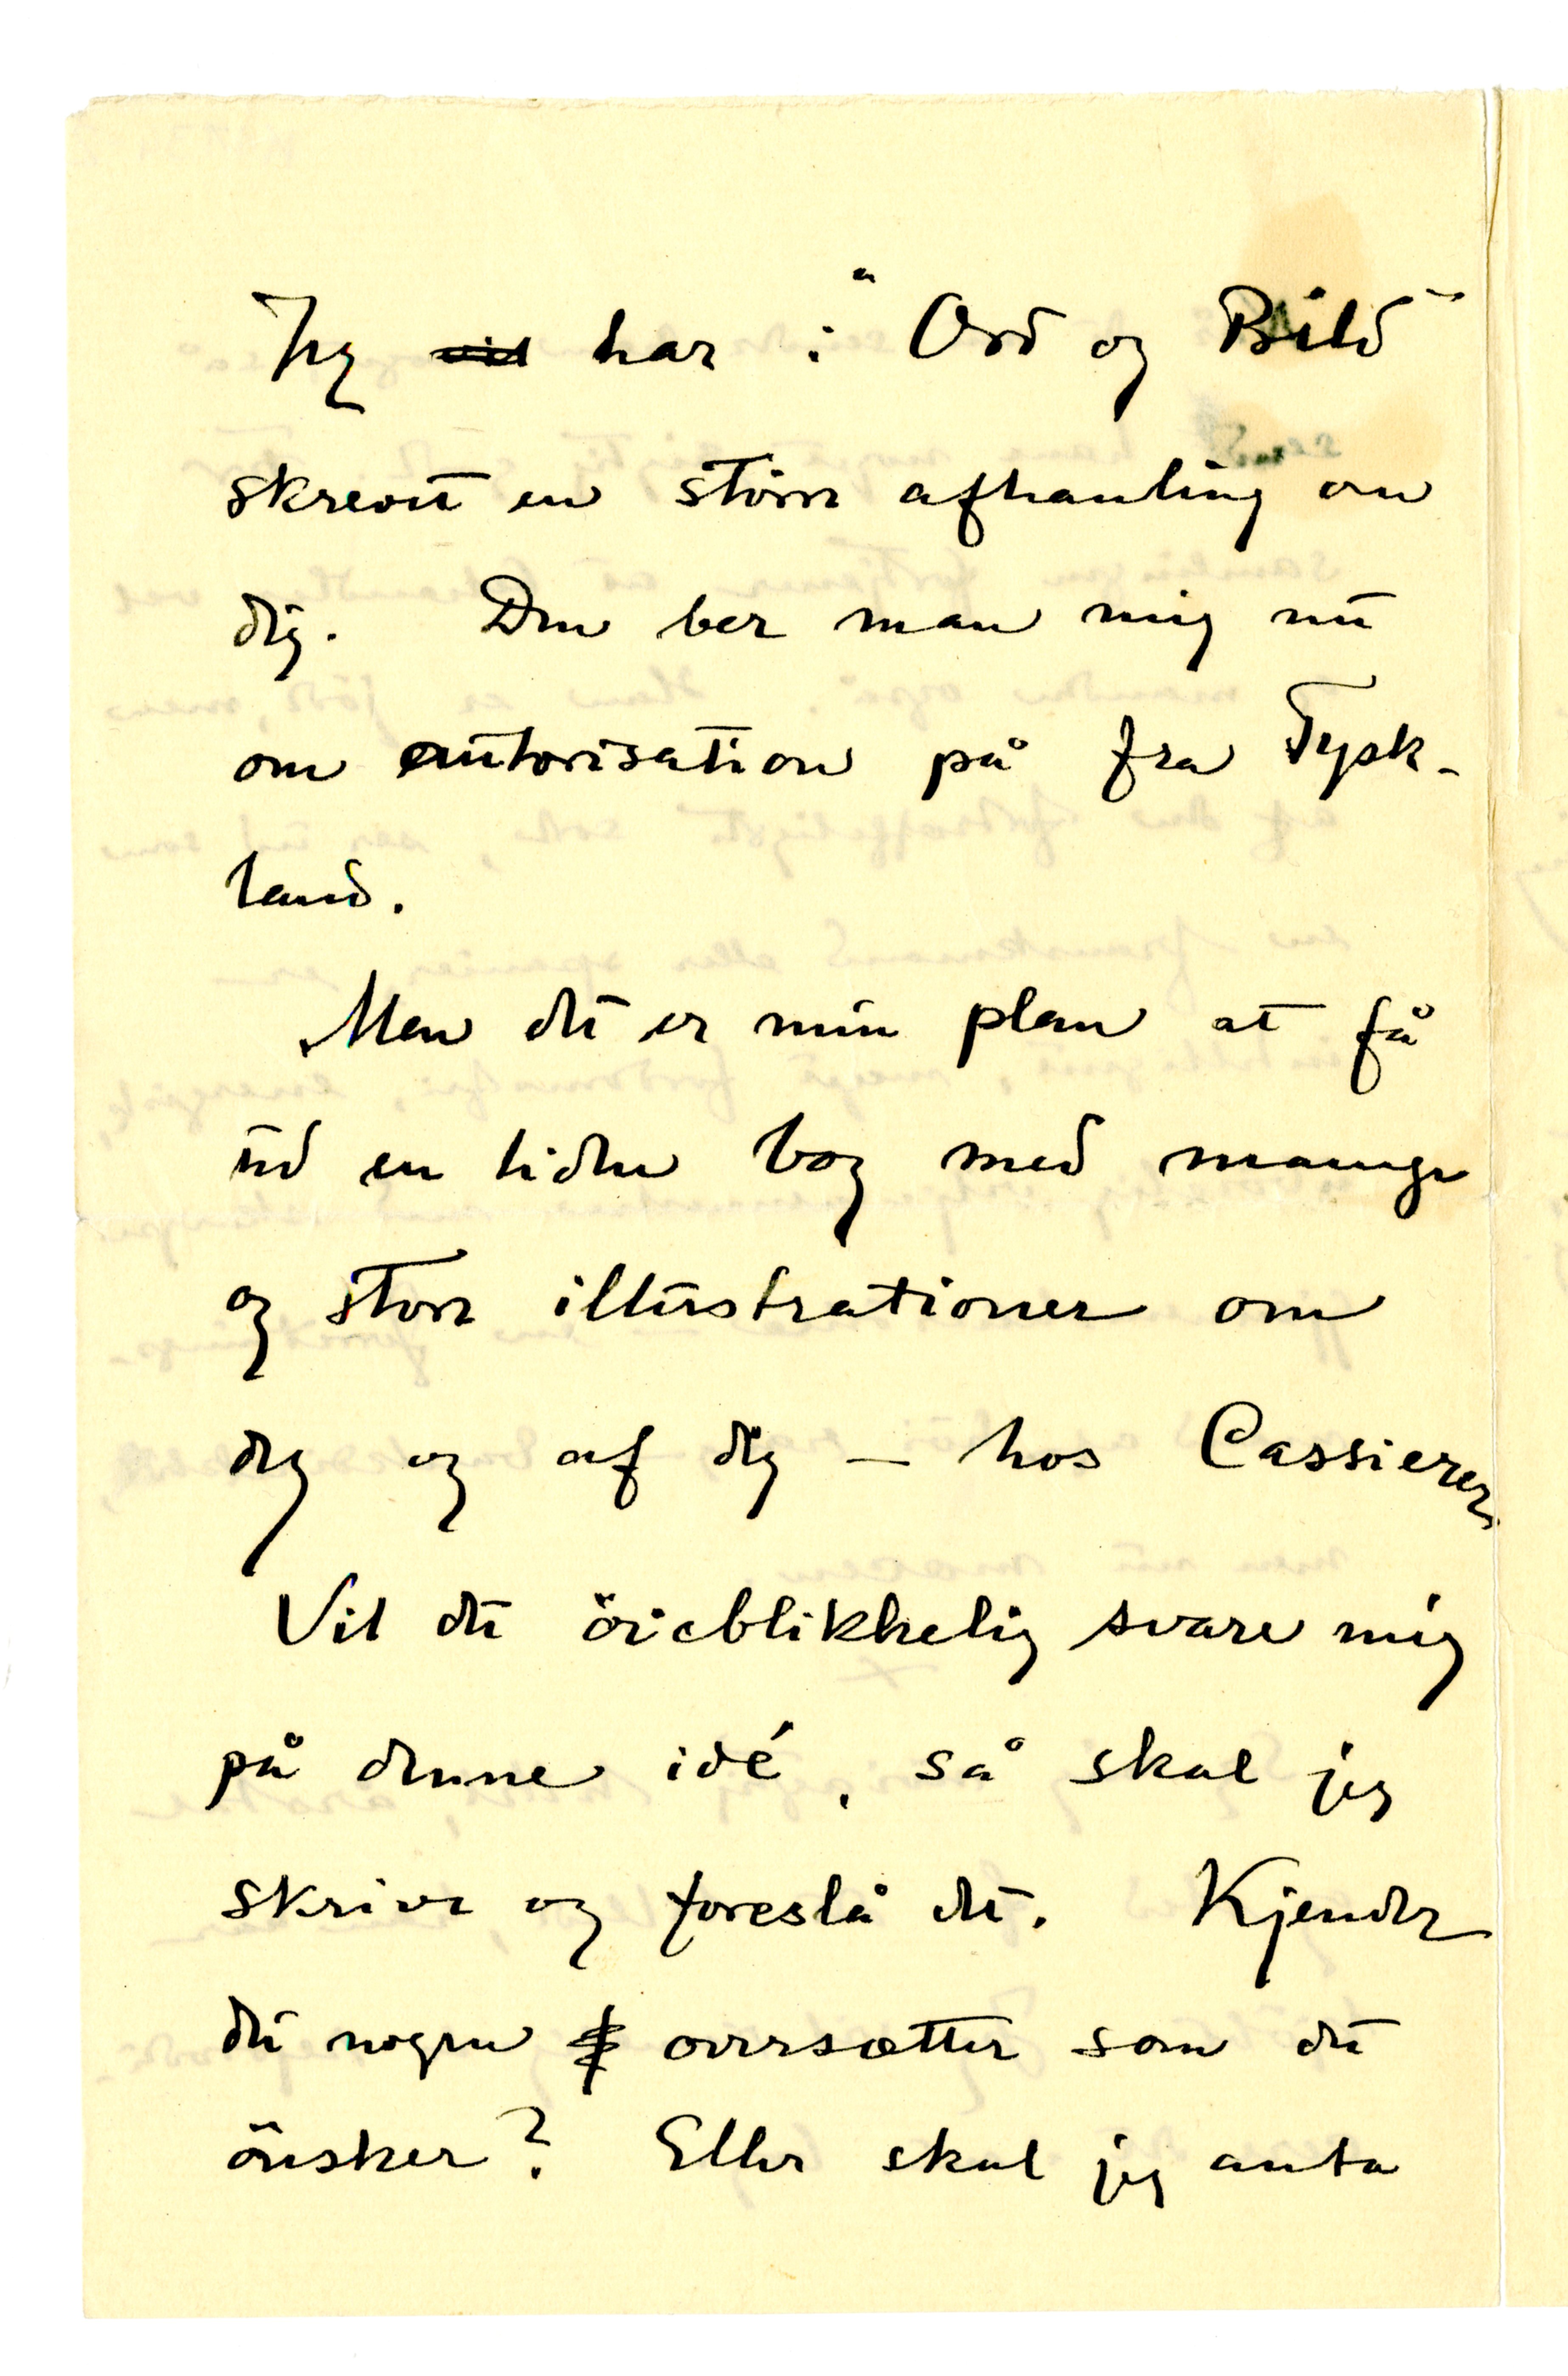 Jeg vil har i "Ord og Bild"
skrevet en större afhanling om
dig. Den ber man mig nu
om autorisation på fra Tysk-
land.
Men det er min plan at få
ud en liden bog med mange
og store illustrationer om
dig og af dig – hos Cassierer.
Vil du öieblikkelig svare mig
på denne idé, så skal jeg
skrive og foreslå det. Kjender
du nogen oversætter som du
önsker? Eller skal jeg anta